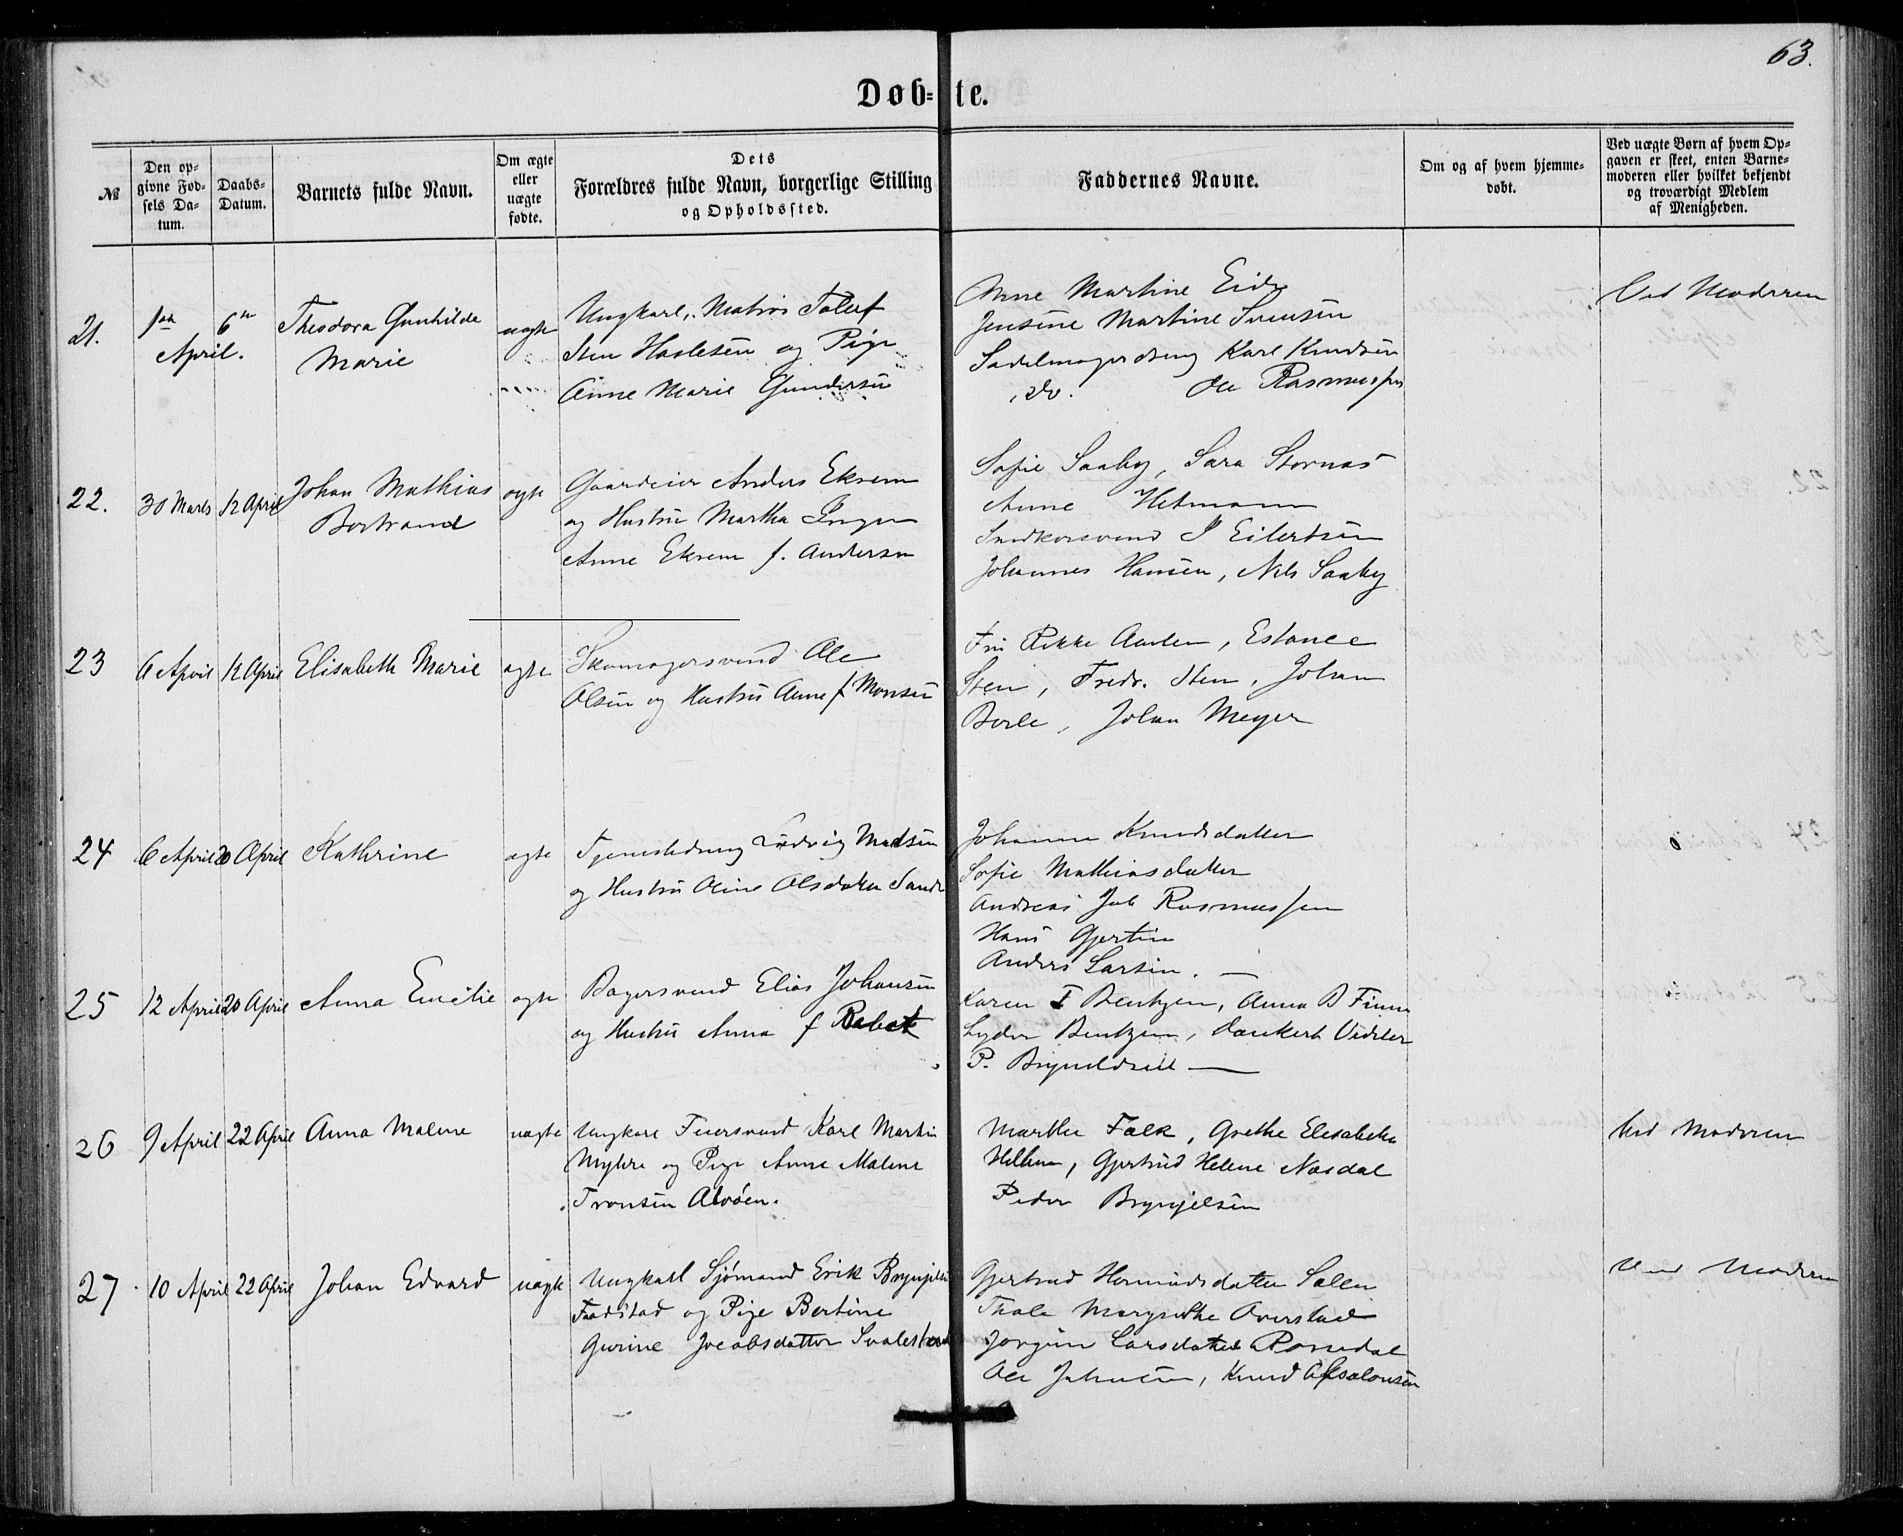 63.
Døb-te.
№
Den op-
givne Fød-
sels Da-
tum.
Daabs-
Datum.
Barnets fulde Navn.
Om ægte
eller
uægte
fødte.
Dets
Forældres fulde Navn, borgerlige Stilling
og Opholdssted.
Faddernes Navne.
Om og af hvem hjemme-
døbt.
Ved uægte Børn af hvem Op-
gaven er skeet, enten Barne-
moderen eller hvilket bekjendt
og troværdigt Medlem
af Menigheden.
21.
1ste
April.
6te
Theodora Gunhilde
Marie
uægte
Ungkarl, Matros Tolluf
Sten Haslesen og Pige
Anne Marie Gundersen
Anne Martine Eide
Jensine Martine Svensen
Sadelmagerdreng Karl Knudsen
do. Ole Rasmussen
Ved Moderen
22.
30 Marts
12 April
Johan Mathias
Bertrand
ægte
Gaardeier Anders Eksem
og Hustru Martha
Anne Eksem f. Andersen
Sofie Saaby, Sara Stornæs
Anne Hetmann
Snedkersvend I Eilertsen
Johannes Hansen, Nils Saaby
23
6 April
12 April
Elisabeth Marie
ægte
Skomagersvend Ole
Olsen og Hustru Anne f. Monsen
Rikke
Sten, Fredr. Sten, Johan
Johan Meyer
24
6 April
20 April
Kathrine
ægte
Ludvig Madsen
og Hustru Oline Olsdatter
Johanne Knudsdatter
Sofie Mathiasdatter
Andreas Jak Rasmussen
Hans Gjertsen
Anders Larsen. —
25
12 April
20 April
Anna Emelie
ægte
Bagersvend Elias Johansen
og Hustru Anna f
Karen F Bentzen, Anna B Finne
Lyder Bentzen, Dankert
P. Brynildsen —
26
9 April
22 April
Anna Malene
uægte
Ungkarl Karl Martin
Myhre og Pige Anne Malene
Tronsen Alvøen.
Marthe Falk, Grethe Elisabeth
Gjertrud Helene Næsdal
Peder Brynjelsen
Ved Moderen
27
10 April
22 April
Johan Edvard
uægte
Ungkarl Sjømand Erik Brynjelsen
og Pige Bertine
Gurine Jacobsdatter
Gjertrud
Thale Margrethe
Larsdatter
Ole Johnsen, Knud Absalonsen
Ved Moderen